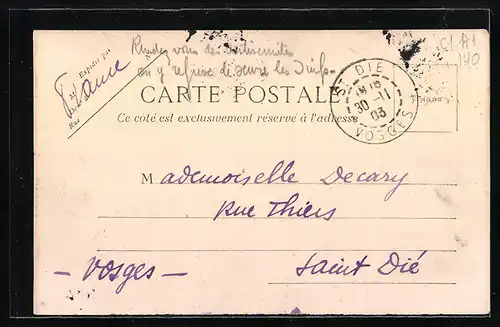 Rendez vous des antisémites
on y refuse de servir les Juifs
Cl. A1
140
Expédié par
France
Rue
CARTE POSTALE
Ce côté est exclusivement réservé à l'adresse
ST DIÉ
30 -11
03
VOSGES
Mademoiselle Decary
Rue Thiers
- Vosges - Saint Dié